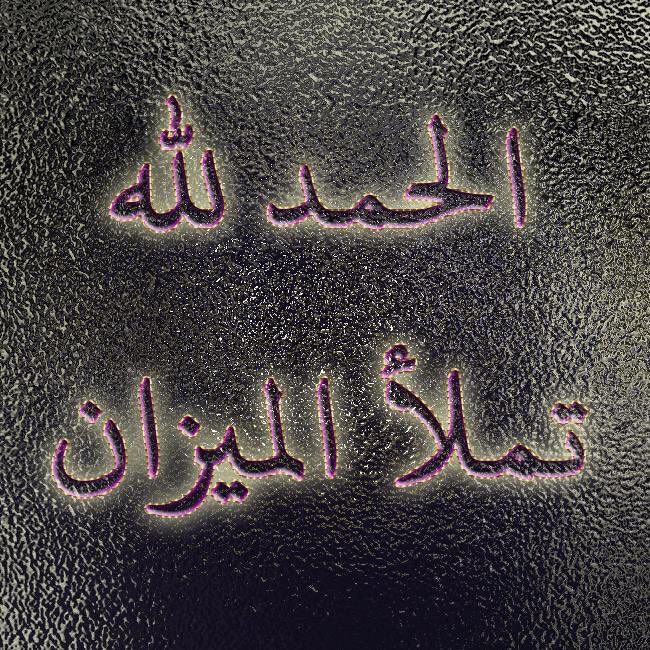 الحمد لله
تملأ الميزان